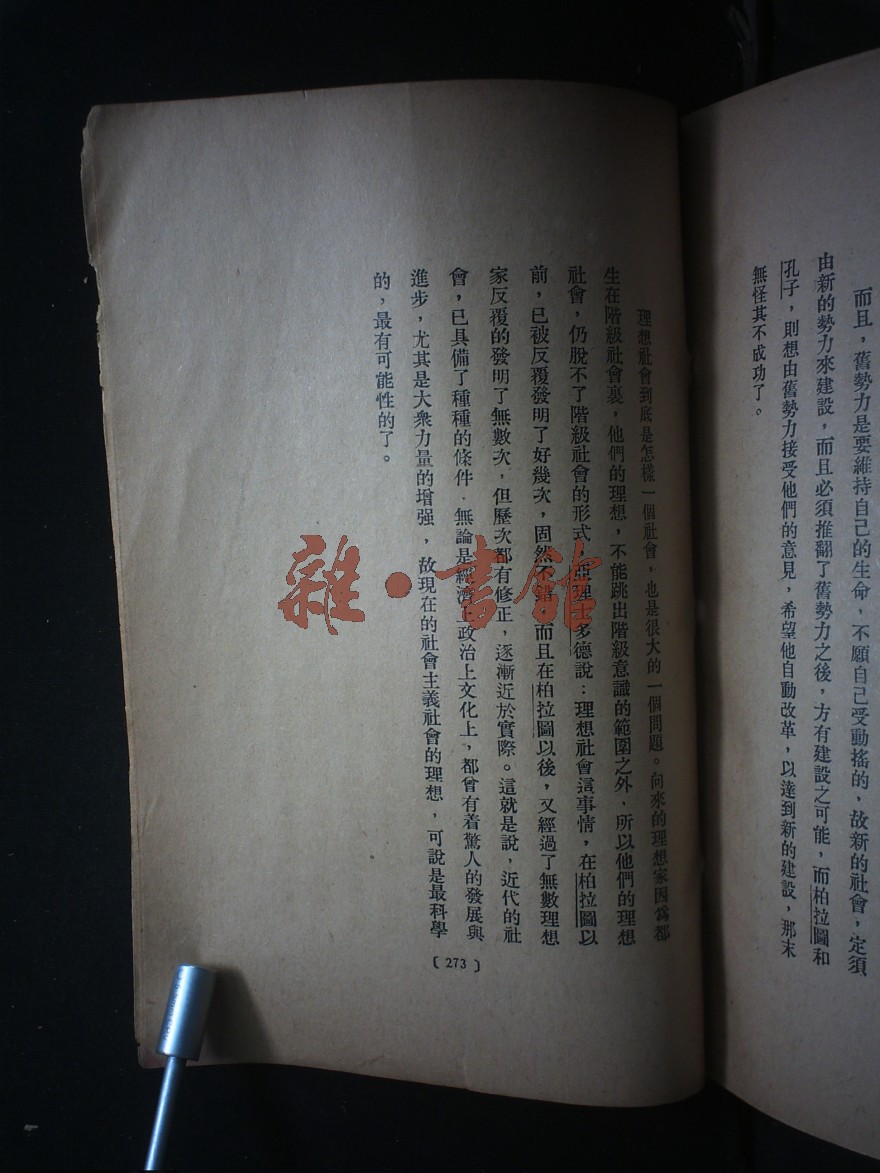 而且，舊勢力是要維持自己的生命，不願自己受動搖的，故新的社會，定須
由新的勢力來建設，而且必須推翻了舊勢力之後，方有建設之可能，而柏拉圖和
孔子，則想由舊勢力接受他們的意見，希望他自動改革，以達到新的建設，那末
無怪其不成功了。
理想社會到底是怎樣一個社會，也是很大的一個問題。向來的理想家因爲都
生在階級社會裏，他們的理想，不能跳出階級意識的範圍之外，所以他們的理想
社會，仍脫不了階級社會的形式，亞理士多德說：理想社會這事情，在柏拉圖以
前，已被反覆發明了好幾次，固然不錯，而且在柏拉圖以後，又經過了無數理想
家反覆的發明了無數次，但歷次都有修正，逐漸近於實際。這就是說，近代的社
會，已具備了種種的條件．無論是經濟上政治上文化上，都曾有着驚人的發展與
進步，尤其是大衆力量的增强，故現在的社會主義社會的理想，可說是最科學
的，最有可能性的了。
〔273〕
雜·書館